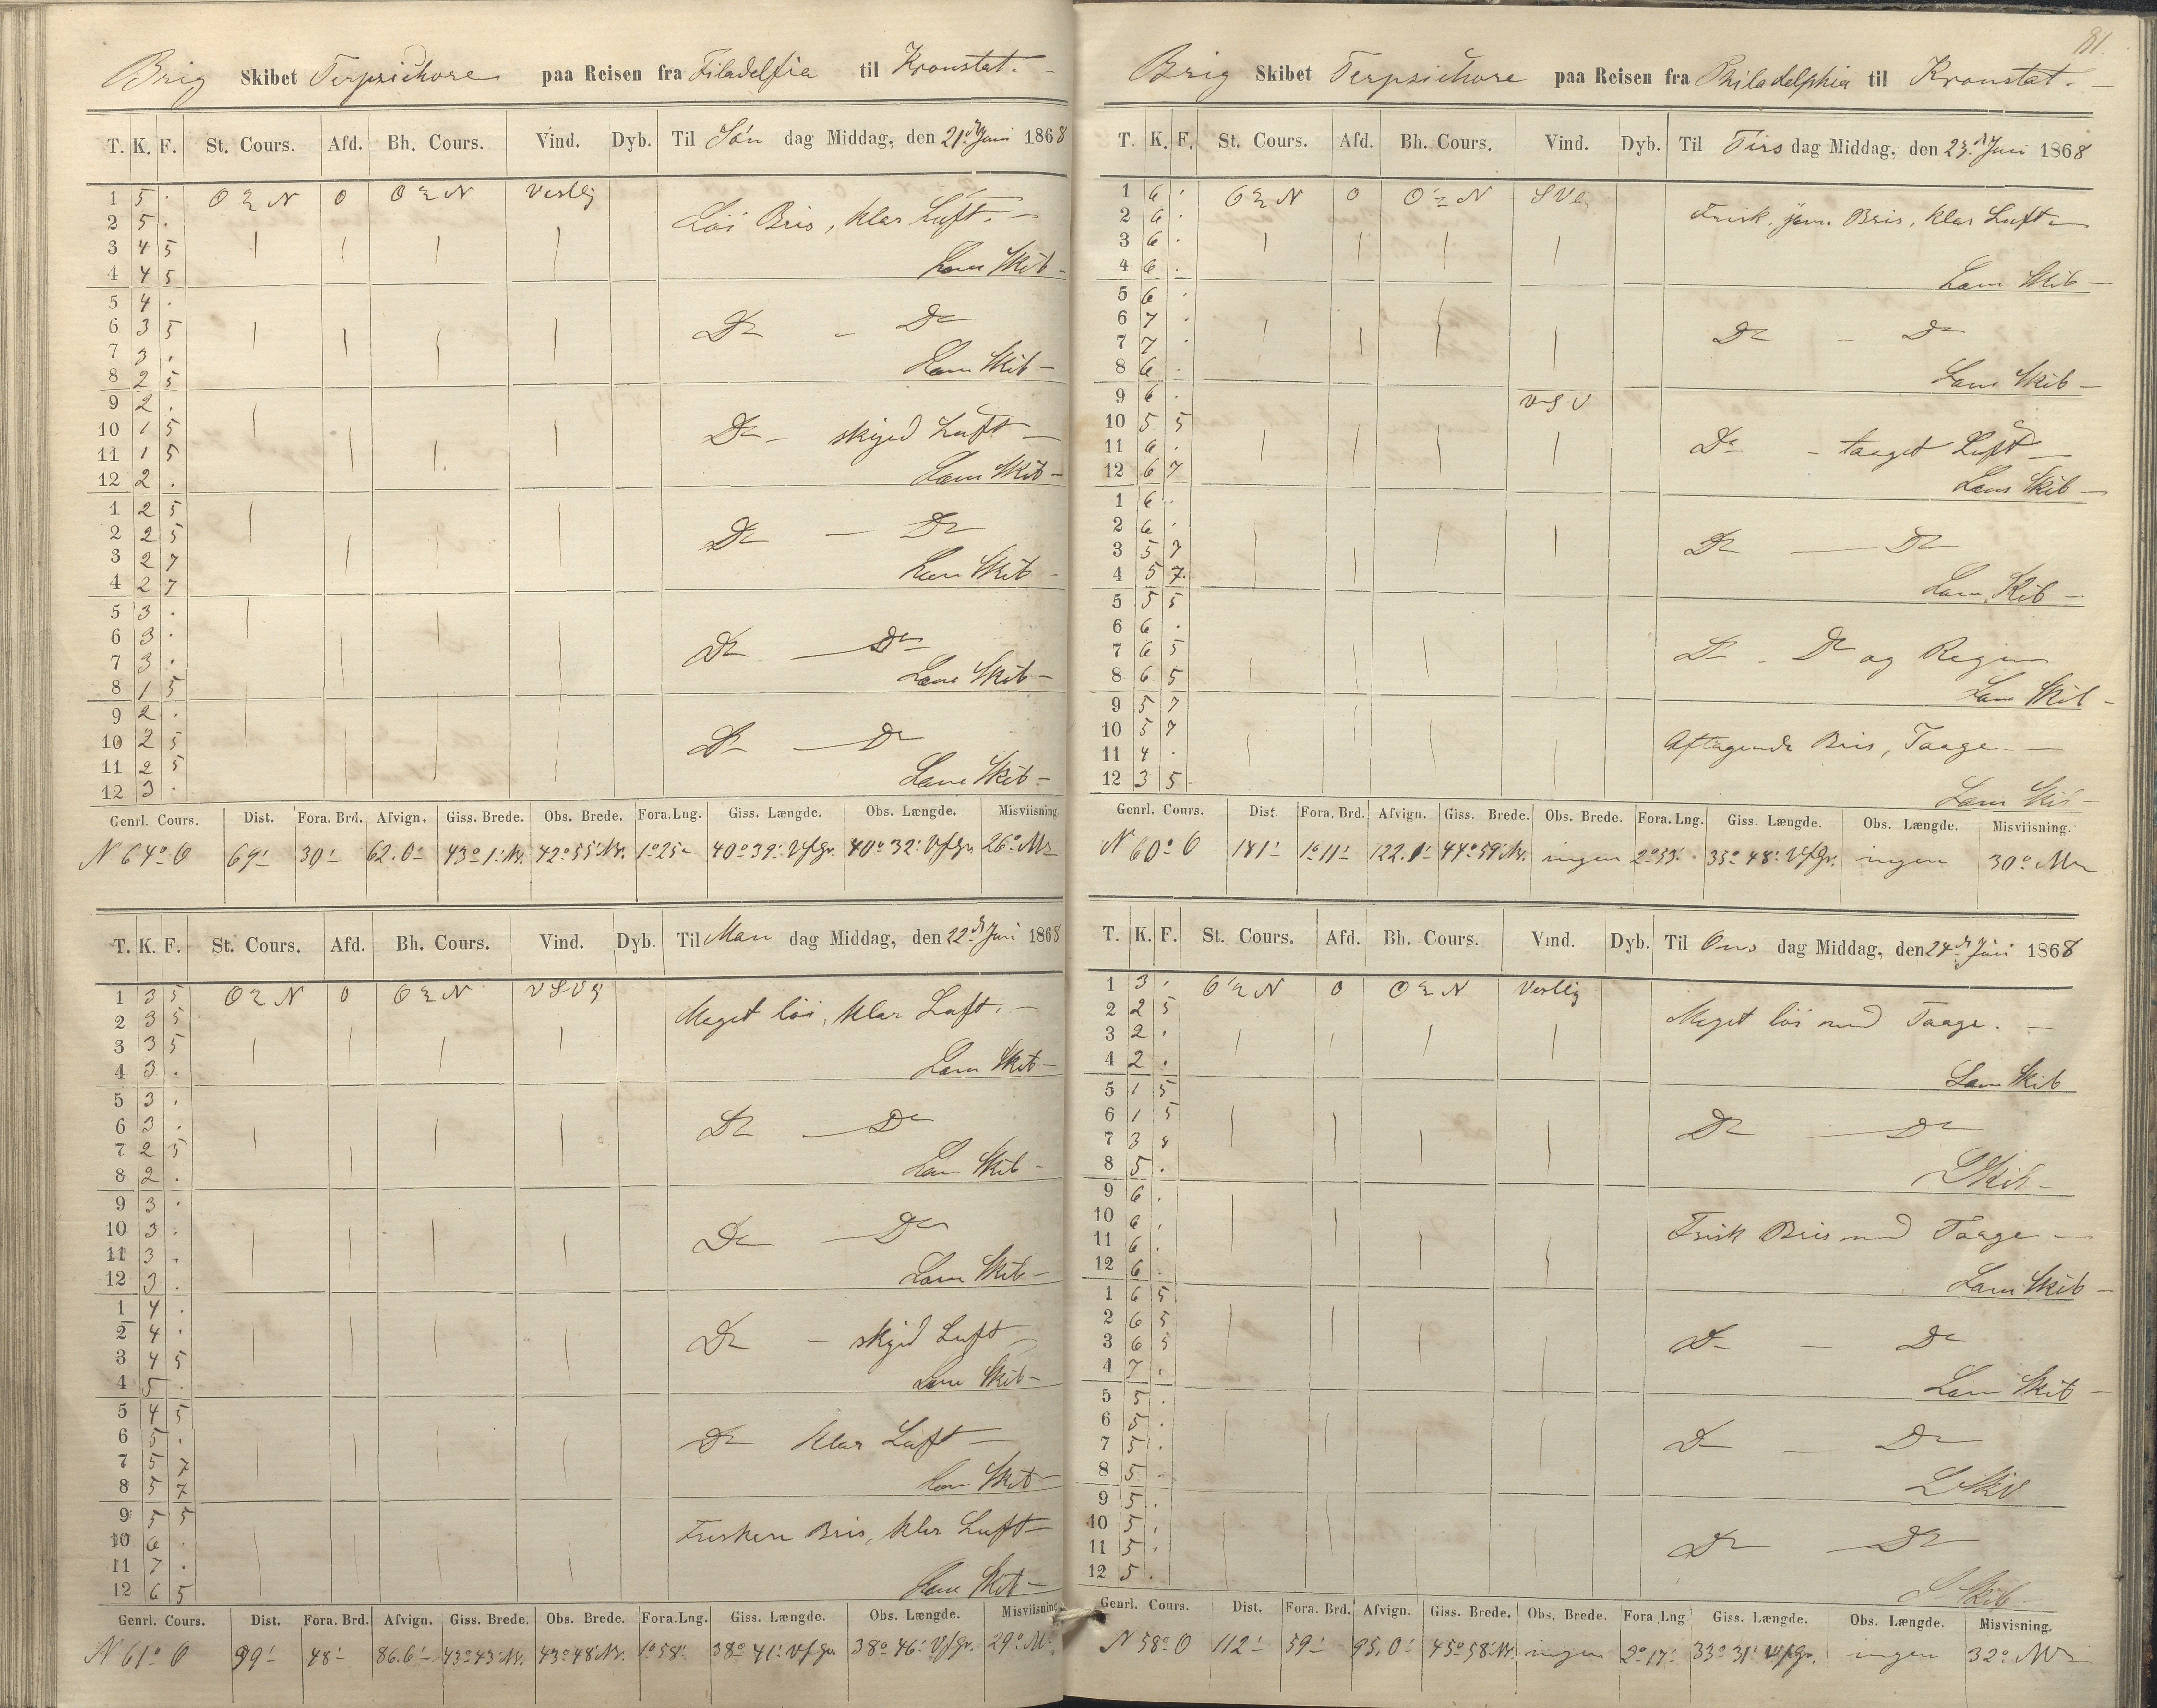 Brig Skibet Terpsichore paa Reisen fra Filadelfia til Kronstat.
T. K. F. St. Cours. Afd. Bh. Cours. Vind. Dyb. Til Søn dag Middag, den 21de Juni 1868
1 5 . O N 0 O N Vestlig
2 5 . Löi Bris, klar Luft. –
3 4 5
4 4 5 Læns Skib –
5 4 .
6 3 5 Do – Do
7 3 .
8 2 5 Læns Skib –
9 2 .
10 1 5 Do – skyed Luft –
11 1 5
12 2 . Læns Skib –
1 2 5
2 2 5 Do – Do
3 2 7
4 2 7 Læns Skib –
5 3 .
6 3 . Do – Do
7 3 .
8 1 5 Læns Skib –
9 2 .
10 2 5 Do – Do
11 2 5
12 3 . Læns Skib –
Genrl. Cours. Dist. Fora. Brd. Afvign. Giss. Brede. Obs. Brede. Fora.Lng. Giss. Længde. Obs. Længde. Misviisning.
N 64° O 69' 30' 62.0' 43° 1' N. 42° 55' N. 1° 25' 40° 39' V f Gr. 40° 32' V f Gr. 26°
T. K. F. St. Cours. Afd. Bh. Cours. Vind. Dyb. Til Man dag Middag, den 22de Juni 1868
1 3 5 O N 0 O N VSV
2 3 5 Meget löi, klar Luft. –
3 3 5
4 3 . Læns Skib –
5 3 .
6 3 . Do – Do
7 2 5
8 2 . Læns Skib –
9 3 .
10 3 . Do – Do
11 3 .
12 3 . Læns Skib –
1 4 .
2 4 . Do – skyed Luft
3 4 5
4 5 . Læns Skib –
5 4 5
6 5 . Do klar Luft –
7 5 7
8 5 7 Læns Skib –
9 5 5
10 6 . Friskere Bris, klar Luft –
11 7 .
12 6 5 Læns Skib –
Genrl. Cours. Dist. Fora. Brd. Afvign. Giss. Brede. Obs. Brede. Fora.Lng. Giss. Længde. Obs. Længde. Misviisning
N 61° O 99' 48' 86.6' 43° 43' N. 43° 48' N. 1° 58' 38° 41' V f Gr 38° 46' V f Gr. 29°
81.
Brig Skibet Terpsichore paa Reisen fra Philadelphia til Kronstat. –
T. K. F. St. Cours. Afd. Bh. Cours. Vind. Dyb. Til Tirs dag Middag, den 23de Juni 1868
1 6 . O N 0 O N SV
2 6 . Frisk, jevn Bris, klar Luft –
3 6 .
4 6 . Læns Skib –
5 6 .
6 7 . Do – Do
7 7 .
8 6 . Læns Skib –
9 6 . VSV
10 5 5 Do – taaget Luft –
11 6 .
12 6 7 Læns Skib –
1 6 .
2 6 . Do – Do
3 5 7
4 5 7. Læns Skib –
5 5 5
6 6 . Do – Do og Regn
7 6 5
8 6 5 Læns Skib –
9 5 7
10 5 7 Aftagende Bris, Taage –
11 4 .
12 3 5 Læns Skib –
Genrl. Cours. Dist. Fora. Brd. Afvign. Giss. Brede. Obs. Brede. Fora. Lng. Giss. Længde. Obs. Længde. Misviisning.
N 60° O 141' 1° 11' 122.1' 44° 59' N. ingen 2° 53' 35° 48' V f Gr. ingen 30°
T. K. F. St. Cours. Afd. Bh. Cours. Vind. Dyb. Til Ons dag Middag, den 24de Juni 1868
1 3 . O N 0 O N Vestlig
2 2 5 Meget löi med Taage. –
3 2 .
4 2 . Læns Skib
5 1 5
6 1 5 Do – Do
7 3
8 5 . L Skib –
9 6 .
10 6 . Frisk Bris med Taage –
11 6 .
12 6 . Læns Skib –
1 6 5
2 6 5 Do – Do
3 6 5
4 7 . Læns Skib –
5 5 .
6 5 . Do – Do
7 5 .
8 5 . L Skib
9 5 .
10 5 . Do – Do
11 5 .
12 5 . L Skib
Genrl. Cours. Dist. Fora. Brd. Afvign. Giss. Brede. Obs. Brede. Fora Lng Giss. Længde. Obs. Længde. Misvisning.
N 58° O 112' 59' 95.0' 45° 58' N. ingen 2° 17' 33° 31' V f Gr. ingen 32°